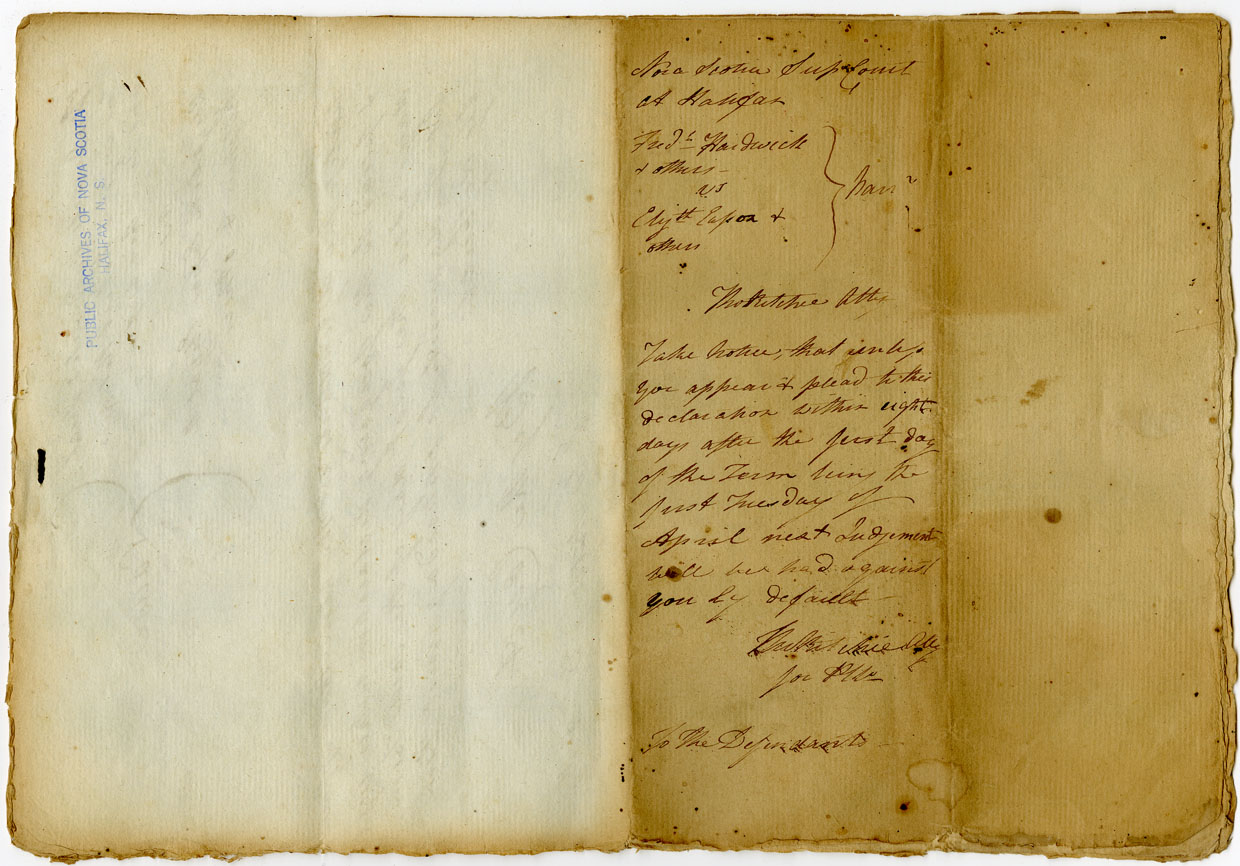 PUBLIC ARCHIVES OF NOVA SCOTIA
HALIFAX, N. S.
Nova Scotia Sup Court
at Halifax
Fred.k Hardwick
& others
vs
Eliz.th Eason &
others
Narr
Tho Ritchie Atty
Take notice, that unless
you appear & plead to this
declaration within eight
days after the first day
of the Term being the
first Tuesday of
April next Judgement
will be had against
you by default
Tho Ritchie Atty
for Pltfs
To the Defendants